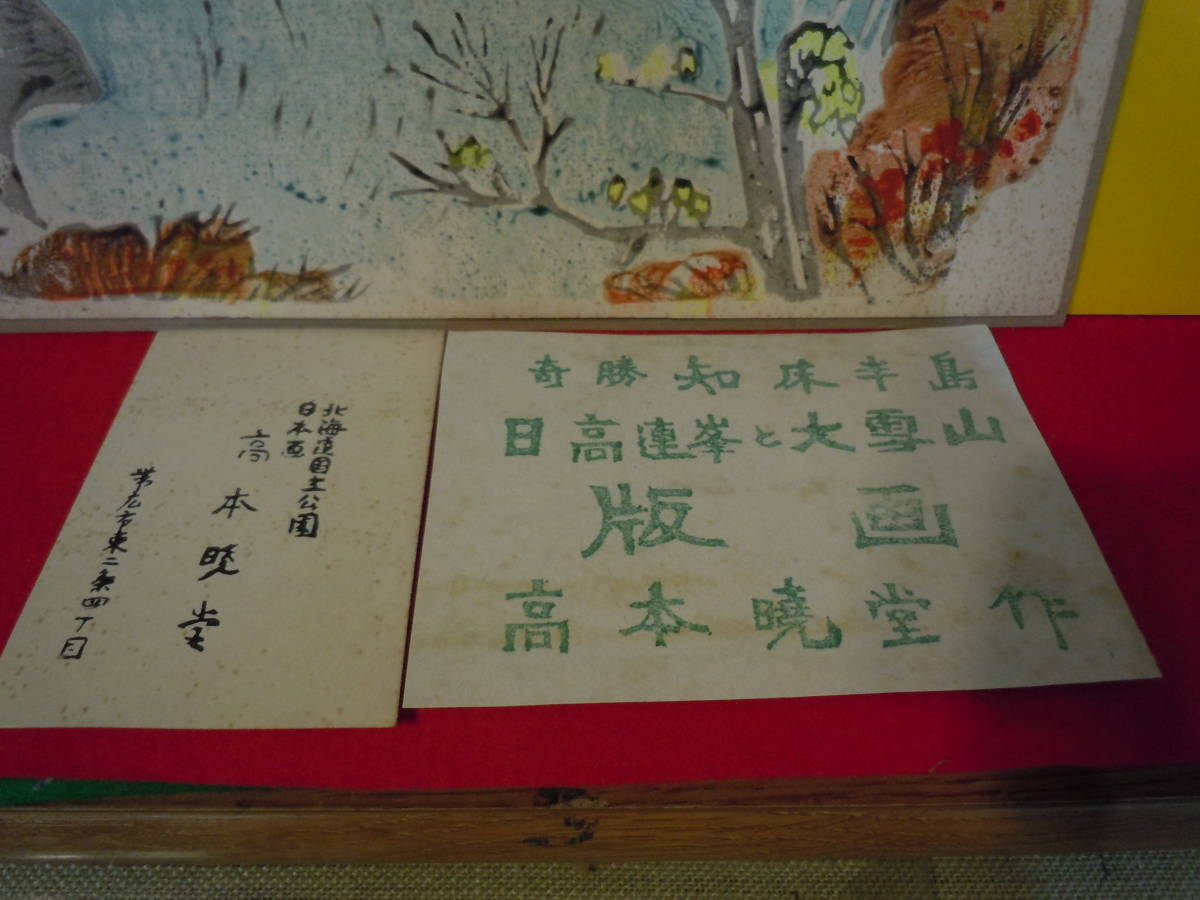 北海道国土公園
日本画
高本暁堂
帯広市東二条四丁目
奇勝知床半島
日高連峯と大雪山
版画
高本曉堂作